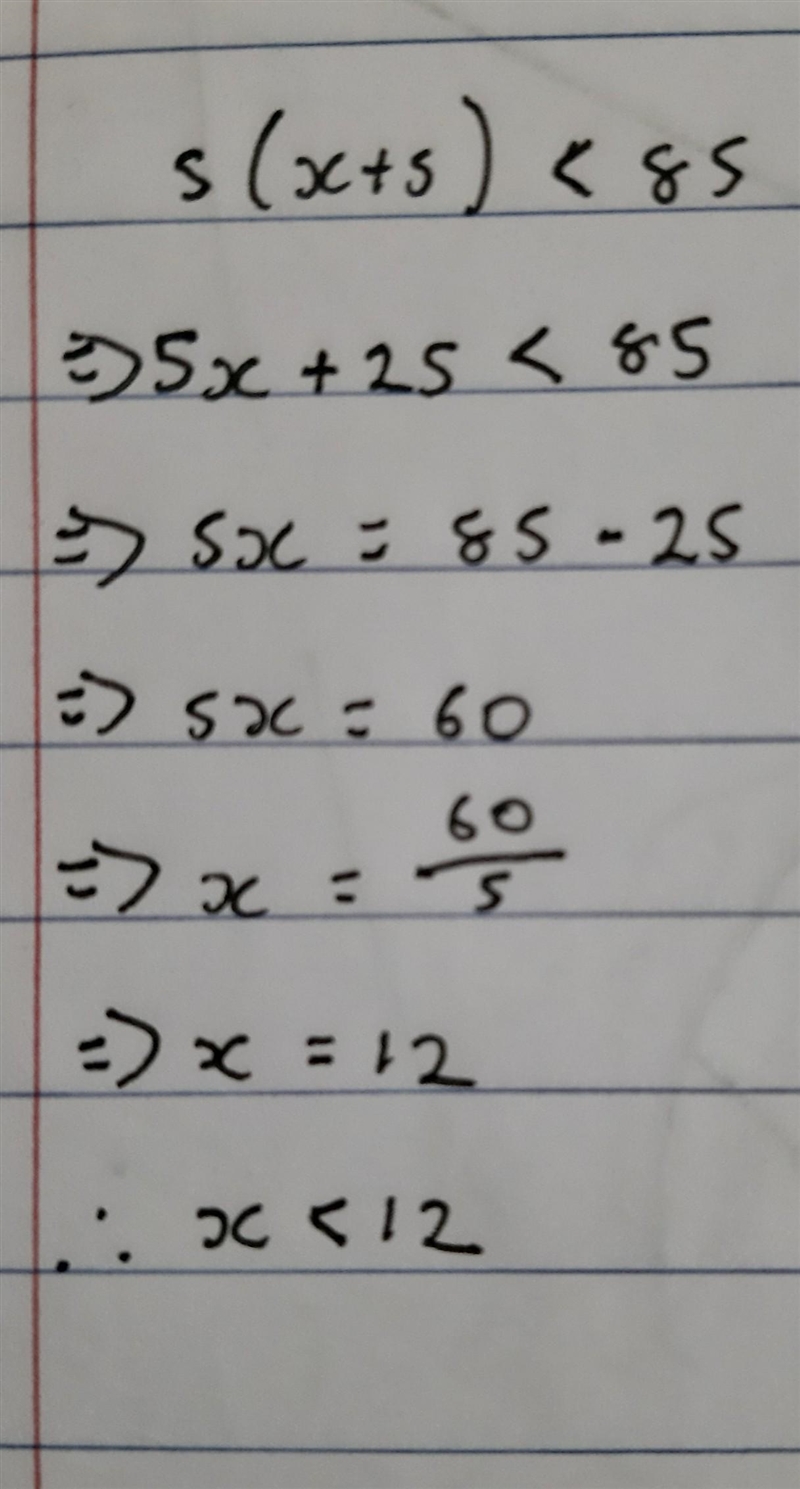 5(x+5) < 85
⇒ 5x + 25 < 85
⇒ 5x = 85 - 25
⇒ 5x = 60
⇒ x = 60/5
⇒ x = 12
∴ x < 12